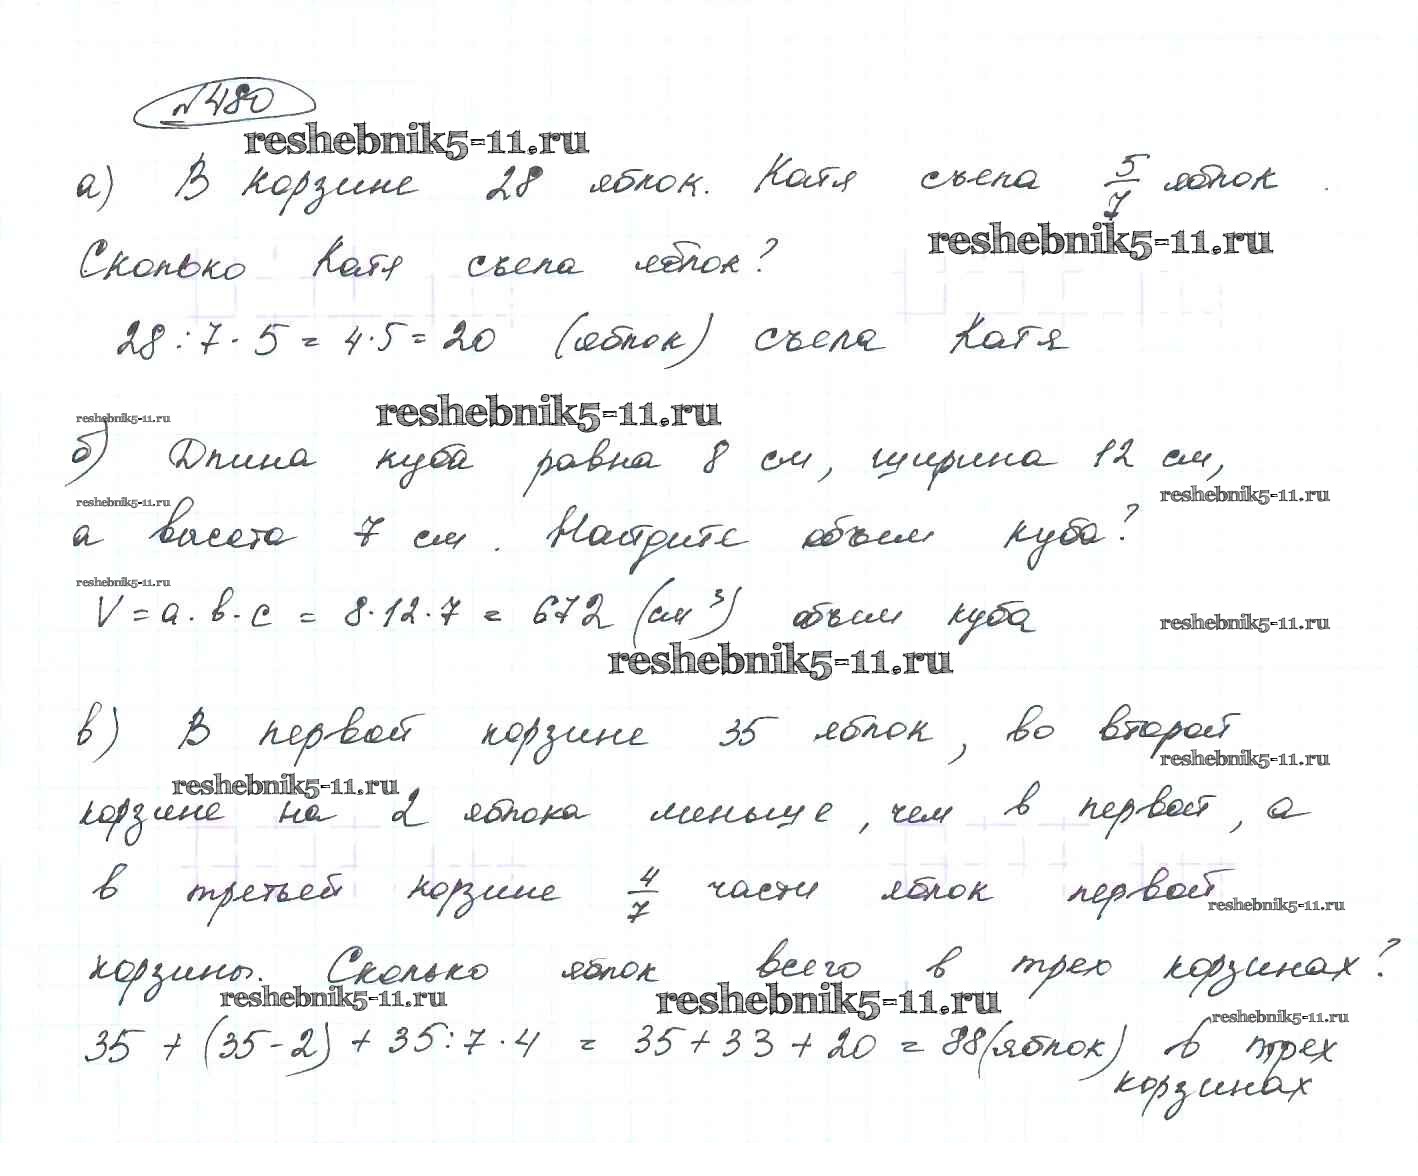 №480
reshebnik5-11.ru
а) В корзине 28 яблок. Катя съела 5/7 яблок.
reshebnik5-11.ru
Сколько Катя съела яблок?
28:7·5=4·5=20 (яблок) съела Катя
reshebnik5-11.ru reshebnik5-11.ru
б) Длина куба равна 8 см, ширина 12 см,
reshebnik5-11.ru reshebnik5-11.ru
а высота 7 см. Найдите объем куба?
reshebnik5-11.ru
V=a·b·c=8·12·7=672 (см³) объем куба
reshebnik5-11.ru
reshebnik5-11.ru
в) В первой корзине 35 яблок, во второй
reshebnik5-11.ru
reshebnik5-11.ru
корзине на 2 яблока меньше, чем в первой, а
в третьей корзине 4/7 части яблок первой
reshebnik5-11.ru
корзины. Сколько яблок всего в трех корзинах?
reshebnik5-11.ru reshebnik5-11.ru
reshebnik5-11.ru
35+(35-2)+35:7·4=35+33+20=88(яблок) в трех
корзинах